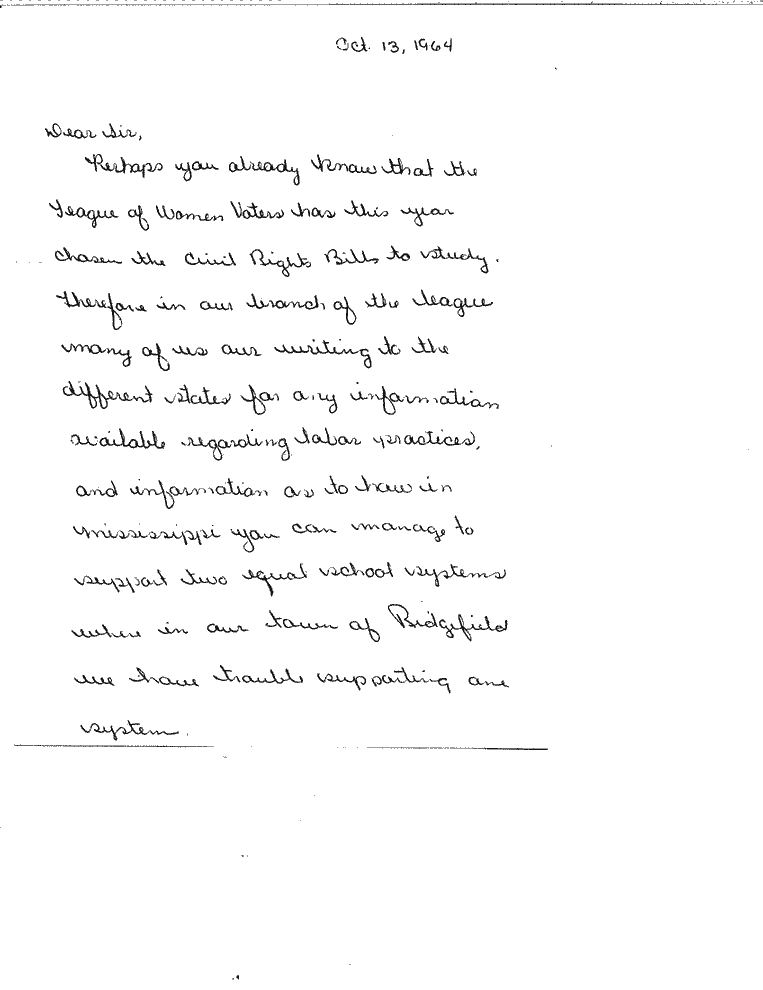 Oct. 13, 1964
Dear Sir,
Perhaps you already know that the
League of Women Voters has this year
chosen the Civil Rights Bills to study.
Therefore in our branch of the league
many of us our writing to the
different states for any information
available regarding labor practices,
and information as to how in
Mississippi you can manage to
support two equal school systems
when in our town of Ridgefield
we have trouble supporting one
system.